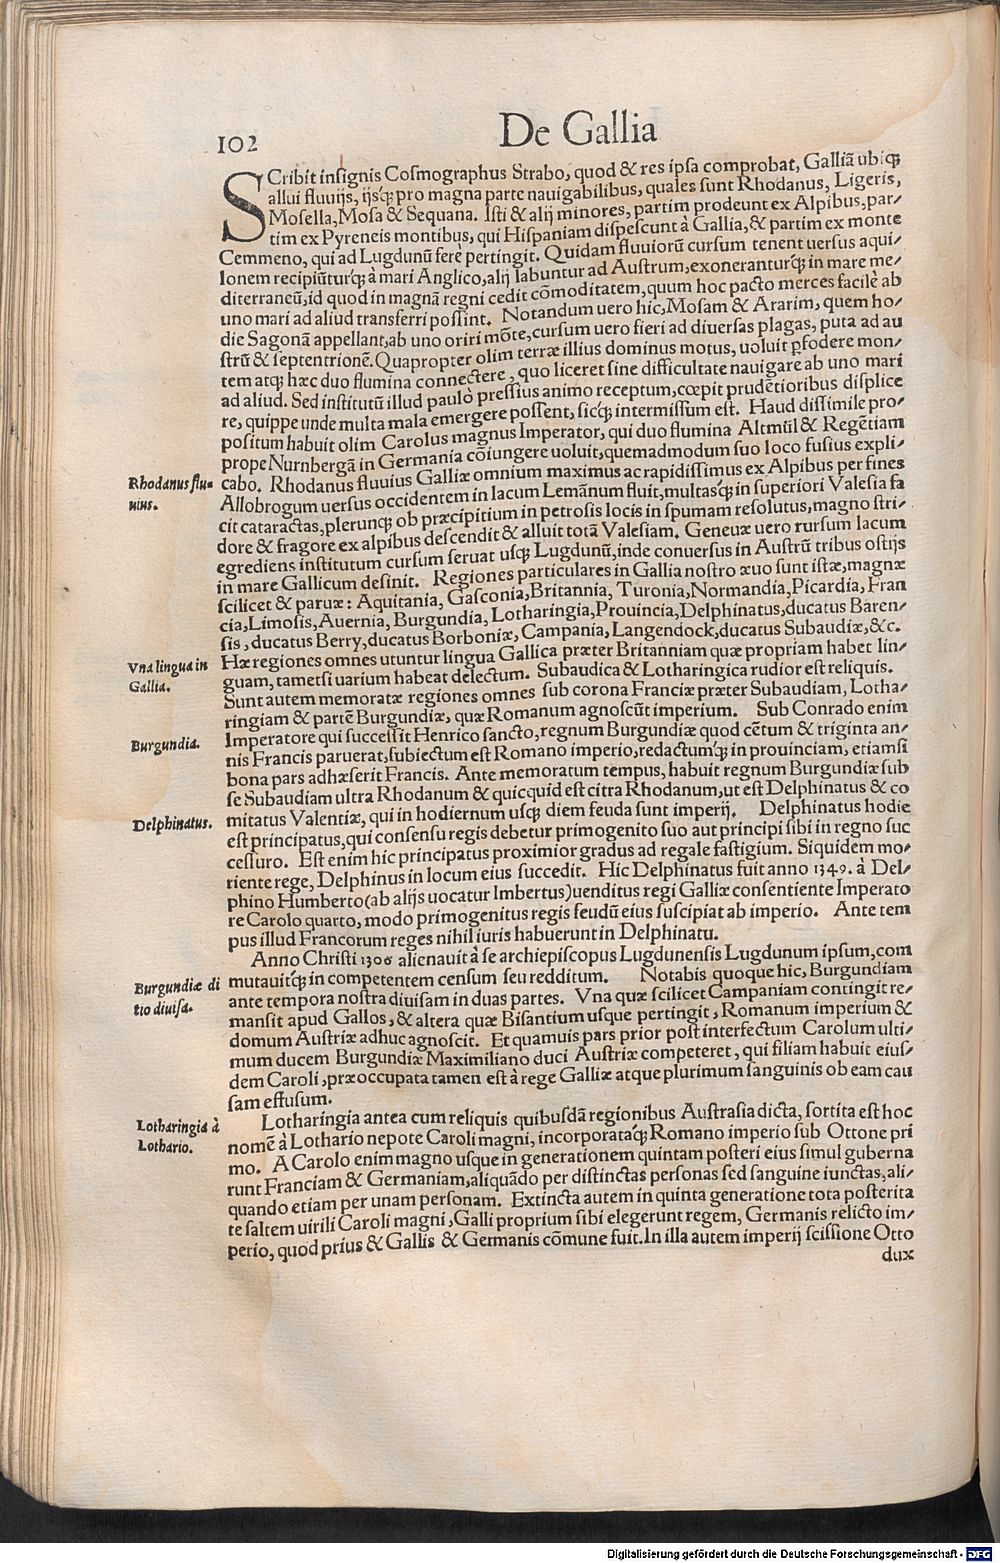 102
De Gallia
SCribit insignis Cosmographus Strabo, quod & res ipsa comprobat, Galliã ubiq́;
allui fluuijs, ijsq́; pro magna parte nauigabilibus, quales sunt Rhodanus, Ligeris,
Mosella, Mosa & Sequana. Isti & alij minores, partim prodeunt ex Alpibus, par-
tim ex Pyreneis montibus, qui Hispaniam dispescunt à Gallia, & partim ex monte
Cemmeno, qui ad Lugdunũ ferè pertingit. Quidam fluuiorũ cursum tenent uersus aqui-
lonem recipiũturq́; à mari Anglico, alij labuntur ad Austrum, exoneranturq́; in mare me-
diterraneũ, id quod in magnã regni cedit cõmoditatem, quum hoc pacto merces facilè ab
uno mari ad aliud transferri possint. Notandum uero hic, Mosam & Ararim, quem ho-
die Sagonã appellant, ab uno oriri mõte, cursum uero fieri ad diuersas plagas, puta ad au
strũ & septentrionẽ. Quapropter olim terræ illius dominus motus, uoluit ꝑfodere mon-
tem atq; hæc duo flumina connectere, quo liceret sine difficultate nauigare ab uno mari
ad aliud. Sed institutũ illud paulò pressius animo receptum, cœpit prudẽtioribus displice
re, quippe unde multa mala emergere possent, sicq́; intermissum est. Haud dissimile pro-
positum habuit olim Carolus magnus Imperator, qui duo flumina Altmül & Regẽtiam
prope Nurnbergã in Germania cõiungere uoluit, quemadmodum suo loco fusius expli-
Rhodanus flu-
uius.
cabo. Rhodanus fluuius Galliæ omnium maximus ac rapidissimus ex Alpibus per fines
Allobrogum uersus occidentem in lacum Lemãnum fluit, multasq́; in superiori Valesia fa
cit cataractas, plerunq; ob præcipitium in petrosis locis in spumam resolutus, magno stri-
dore & fragore ex alpibus descendit & alluit totã Valesiam. Geneuæ uero rursum lacum
egrediens institutum cursum seruat usq; Lugdunũ, inde conuersus in Austrũ tribus ostijs
in mare Gallicum desinit. Regiones particulares in Gallia nostro æuo sunt istæ, magnæ
scilicet & paruæ: Aquitania, Gasconia, Britannia, Turonia, Normandia, Picardia, Fran
cia, Limosis, Auernia, Burgundia, Lotharingia, Prouincia, Delphinatus, ducatus Baren-
sis, ducatus Berry, ducatus Borboniæ, Campania, Langendock, ducatus Subaudiæ, &c.
Vna lingua in
Gallia.
Hæ regiones omnes utuntur lingua Gallica præter Britanniam quæ propriam habet lin-
guam, tametsi uarium habeat delectum. Subaudica & Lotharingica rudior est reliquis.
Sunt autem memoratæ regiones omnes sub corona Franciæ præter Subaudiam, Lotha-
ringiam & partẽ Burgundiæ, quæ Romanum agnoscũt imperium. Sub Conrado enim
Burgundia.
Imperatore qui successit Henrico sancto, regnum Burgundiæ quod cẽtum & triginta an-
nis Francis paruerat, subiectum est Romano imperio, redactumq́; in prouinciam, etiamsi
bona pars adhæserit Francis. Ante memoratum tempus, habuit regnum Burgundiæ sub
se Subaudiam ultra Rhodanum & quicquid est citra Rhodanum, ut est Delphinatus & co
Delphinatus.
mitatus Valentiæ, qui in hodiernum usq; diem feuda sunt imperij. Delphinatus hodie
est principatus, qui consensu regis debetur primogenito suo aut principi sibi in regno suc
cessuro. Est enim hic principatus proximior gradus ad regale fastigium. Siquidem mo-
riente rege, Delphinus in locum eius succedit. Hic Delphinatus fuit anno 1349. à Del-
phino Humberto (ab alijs uocatur Imbertus) uenditus regi Galliæ consentiente Imperato
re Carolo quarto, modo primogenitus regis feudũ eius suscipiat ab imperio. Ante tem
pus illud Francorum reges nihil iuris habuerunt in Delphinatu.
Anno Christi 1306 alienauit à se archiepiscopus Lugdunensis Lugdunum ipsum, com
Burgundiæ di
tio diuisa.
mutauitq́; in competentem censum seu redditum. Notabis quoque hic, Burgundiam
ante tempora nostra diuisam in duas partes. Vna quæ scilicet Campaniam contingit re-
mansit apud Gallos, & altera quæ Bisantium usque pertingit, Romanum imperium &
domum Austriæ adhuc agnoscit. Et quamuis pars prior post interfectum Carolum ulti-
mum ducem Burgundiæ Maximiliano duci Austriæ competeret, qui filiam habuit eius-
dem Caroli, præoccupata tamen est à rege Galliæ atque plurimum sanguinis ob eam cau
sam effusum.
Lotharingia à
Lothario.
Lotharingia antea cum reliquis quibusdã regionibus Austrasia dicta, sortita est hoc
nomẽ à Lothario nepote Caroli magni, incorporataq́; Romano imperio sub Ottone pri
mo. A Carolo enim magno usque in generationem quintam posteri eius simul guberna
runt Franciam & Germaniam, aliquãdo per distinctas personas sed sanguine iunctas, ali-
quando etiam per unam personam. Extincta autem in quinta generatione tota posterita
te saltem uirili Caroli magni, Galli proprium sibi elegerunt regem, Germanis relicto im-
perio, quod prius & Gallis & Germanis cõmune fuit. In illa autem imperij scissione Otto
dux
Digitalisierung gefördert durch die Deutsche Forschungsgemeinschaft - DFG